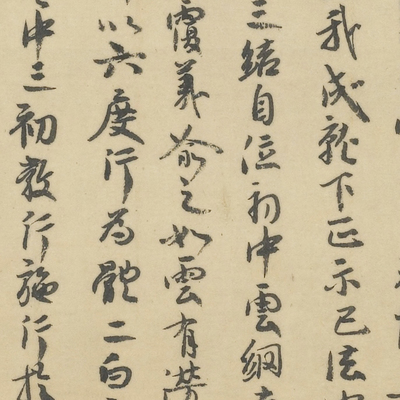 我成就下正示已法
三結自位初中雲網
覆義命之如雲有
以六度行為體二向
中三初教行施行於